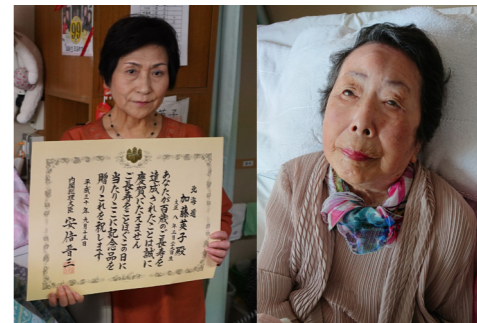 99
北海道
加藤英子殿
あなたが百歳のご長寿を
達成されたことは誠に
慶賀にたえません
ご長寿をことほぐこの日に
当たりここに記念品を
贈りこれを祝します
平成三十年九月十五日
内閣総理大臣 安倍晋三